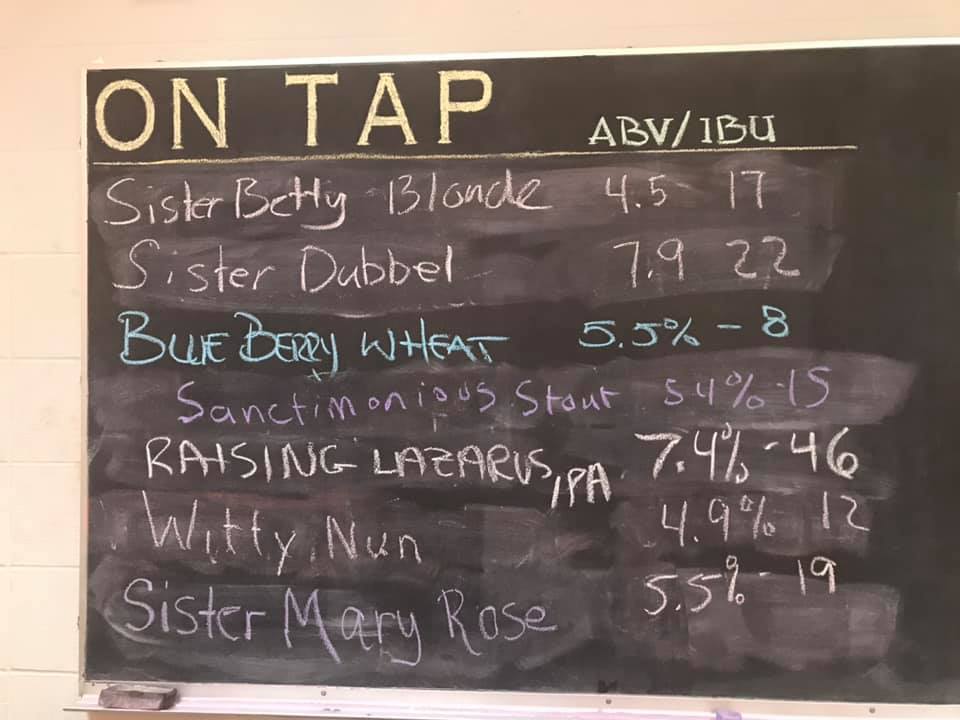 ON TAP ABV/IBU
Sister Betty Blonde 4.5 17
Sister Dubbel 7.9 22
BLUE BERRY WHEAT 5.5% - 8
Sanctimonious Stout 5.4% - 15
RAISING LAZARUS IPA 7.4% - 46
Witty Nun 4.9% 12
Sister Mary Rose 5.5% - 19